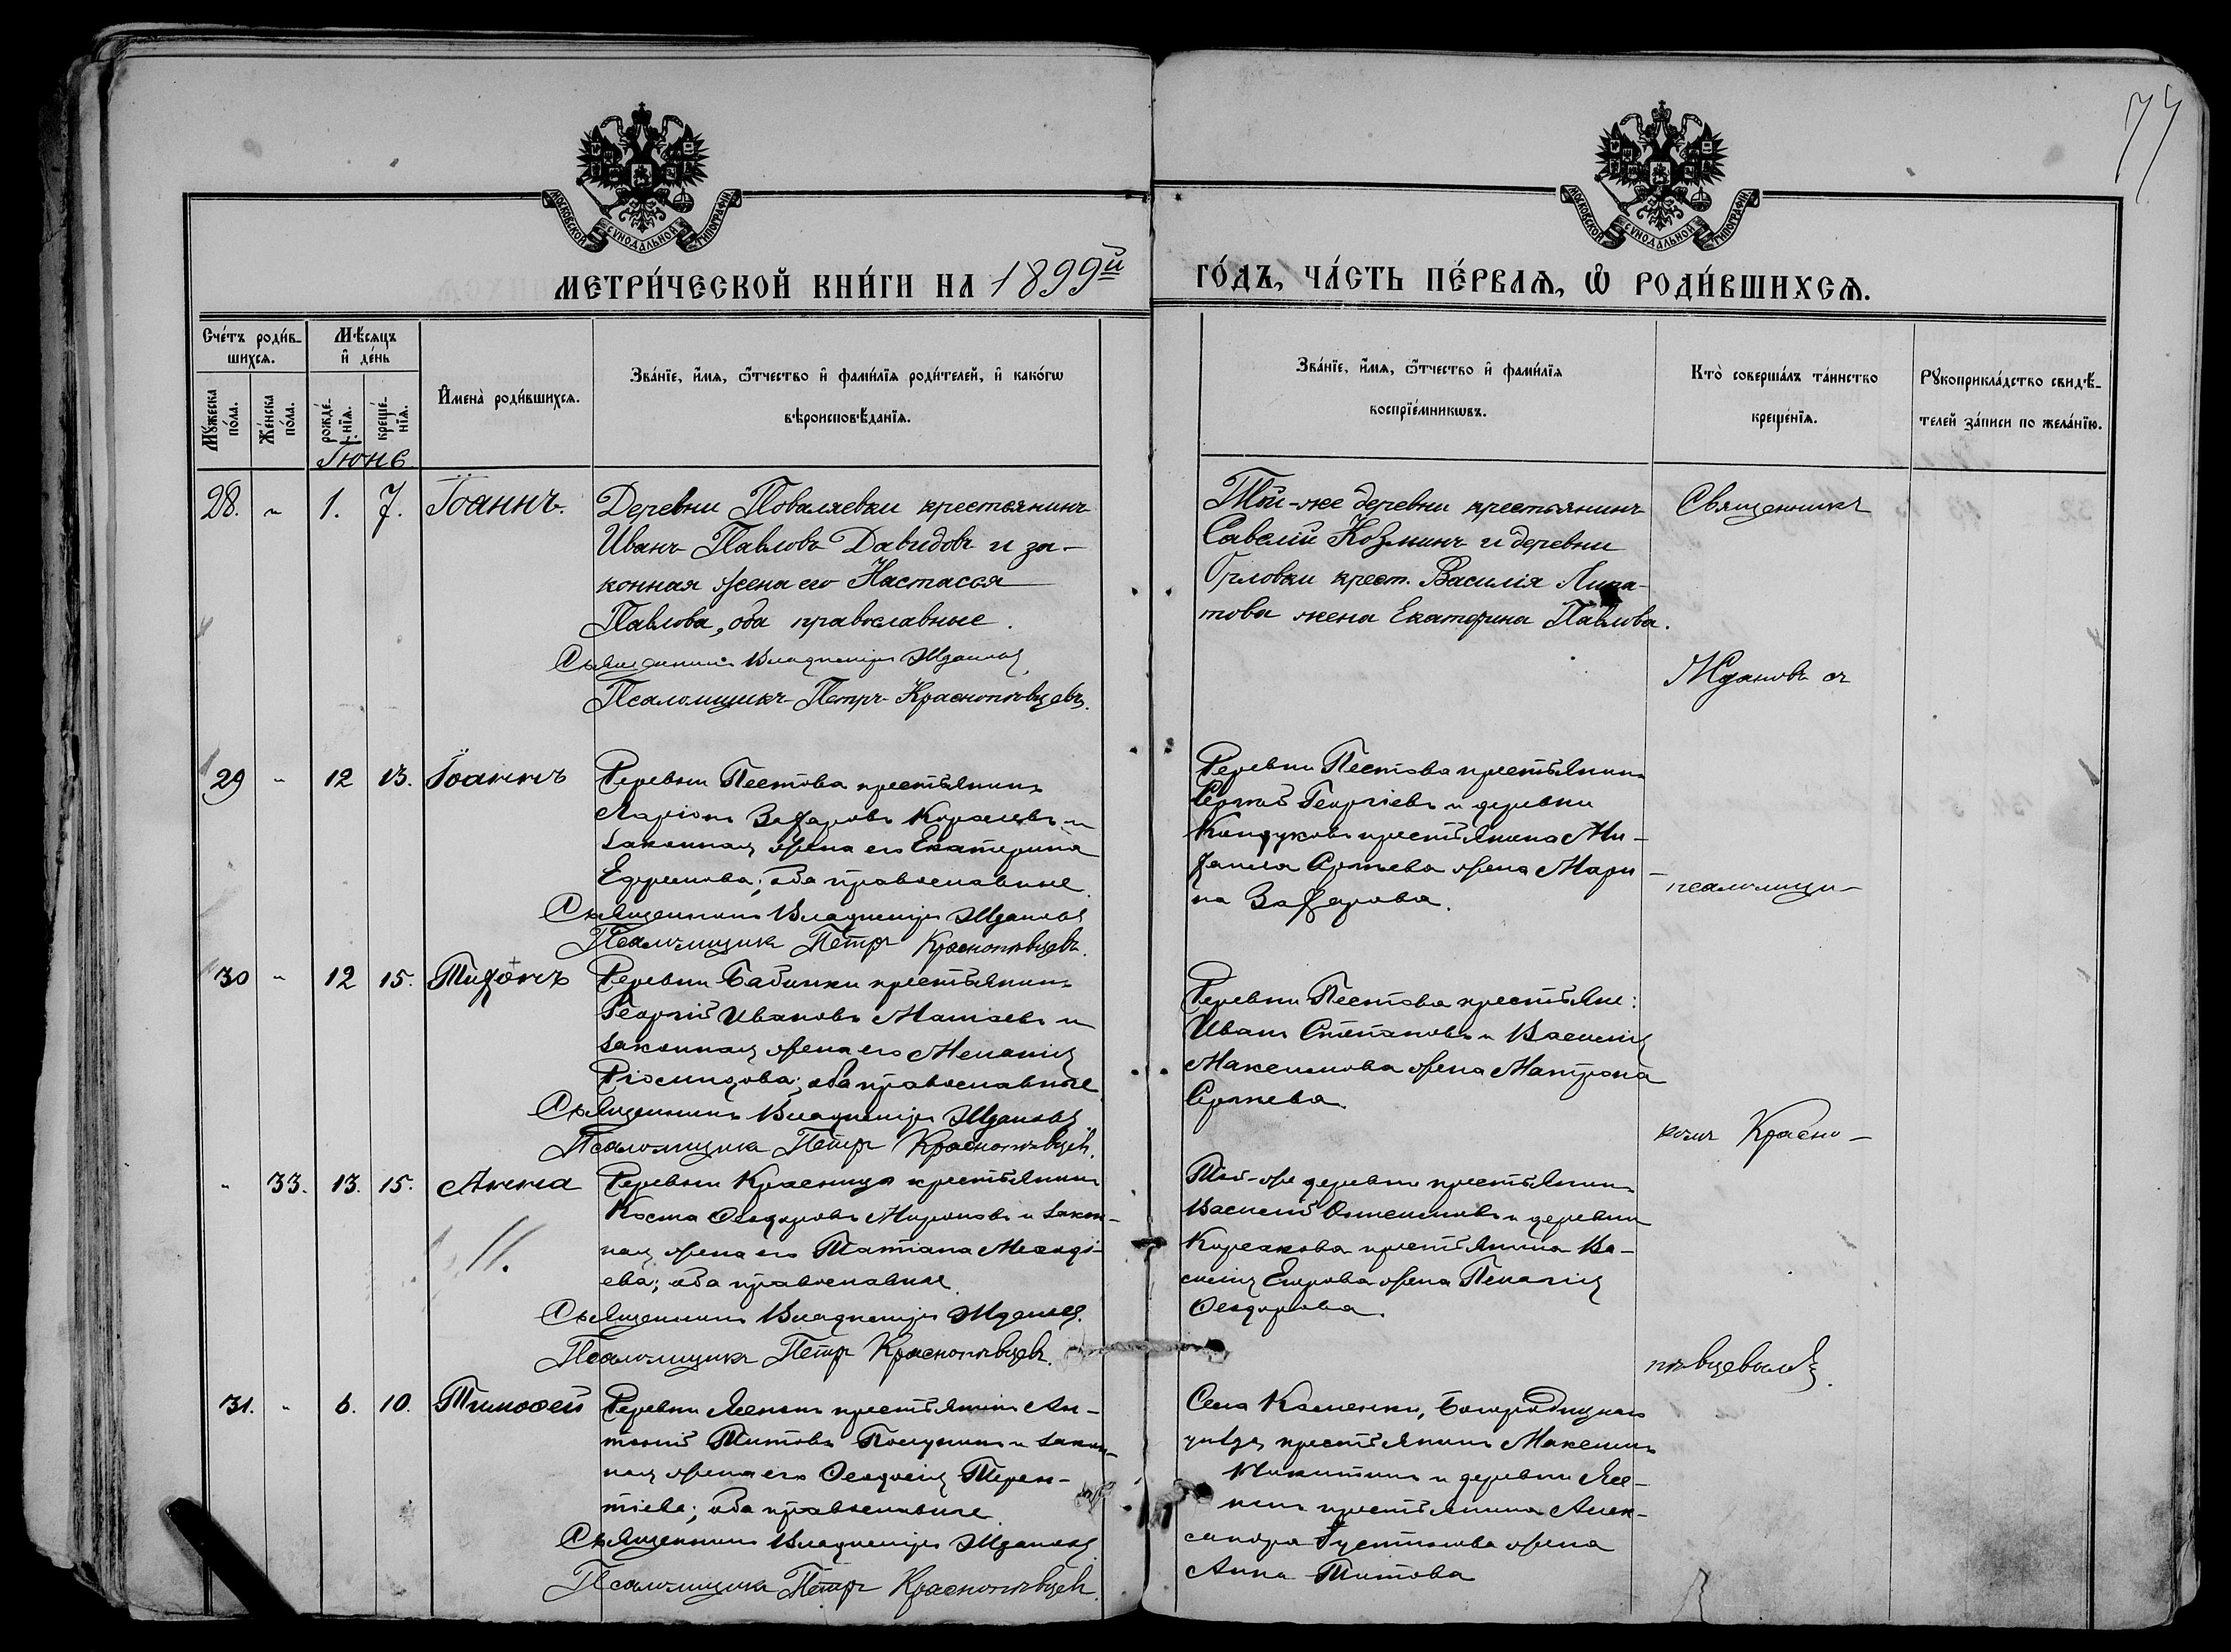 77
МОСКОВСКОЙ СѴНОДАЛЬНОЙ ТИПОГРАФІИ
МОСКОВСКОЙ СѴНОДАЛЬНОЙ ТИПОГРАФІИ
МЕТРИ́ЧЕСКОЙ КНИ́ГИ НА 1899й
ГО́ДЪ, ЧА́СТЬ ПЕ́РВАѦ, Ѽ РОДИ́ВШИХСѦ.
Сче́тъ роди́в-
шихсѧ.
Мꙋ́жеска по́ла.
Же́нска по́ла.
Мѣ́сяцъ
и҆ де́нь
рожде́-
нїѧ.
креще́-
нїѧ.
Іюнь
И҆мена̀ роди́вшихсѧ.
Зва́нїе, и҆́мѧ, ѻ҆́тчество и҆ фами́лїѧ роди́телей, и҆ како́гѡ
вѣроисповѣ́данїѧ.
Зва́нїе, и҆́мѧ, ѻ҆́тчество и҆ фами́лїѧ
воспрїе́мникѡвъ.
Кто̀ соверша́лъ та́инство
креще́нїѧ.
Рꙋкоприкла́дство свидѣ́-
телей за́писи по жела́нїю.
28. " 1. 7. Іоаннъ.
Деревни Поваляевки крестьянинъ
Иванъ Павловъ Давидовъ и за-
конная жена его Настасья
Павлова, оба православные.
Священникъ Владимiръ Ждановъ
Псаломщикъ Петръ Краснопѣвцевъ.
Той-же деревни крестьянинъ
Савелій Козминъ и деревни
Орловки крест. Василія Липа-
това жена Екатерина Павлова.
Священникъ
Ждановъ съ
29 " 12 13. Іоаннъ
Деревни Пестова крестьянинъ
Ларіонъ Захаровъ Королевъ и
законная жена его Екатерина
Ефремова; оба православные.
Священникъ Владимiръ Ждановъ
Псаломщикъ Петръ Краснопѣвцевъ.
Деревни Пестова крестьянинъ
Сергѣй Георгіевъ и деревни
крестьянина Ми-
хаила Сергѣева жена Мари-
на Захарова.
псаломщи-
30 " 12 15. Тихонъ
Деревни Бабинки крестьянинъ
Георгій Ивановъ и
законная жена его Меланія
Діомидова; оба православные
Священникъ Владимiръ Ждановъ
Псаломщикъ Петръ Краснопѣвцевъ.
Деревни Пестова крестьяне:
Иванъ Степановъ и Василія
Максимова жена Матрона
Сергѣева
комъ Красно-
" 33. 13. 15. Анна
Деревни крестьянинъ
Косма Ѳеодоровъ Мироновъ и закон-
ная жена его Татіана Меѳоді-
ева; оба православные
Священникъ Владимiръ Ждановъ.
Псаломщикъ Петръ Краснопѣвцевъ.
Той-же деревни крестьянинъ
Василій и деревни
крестьянина Ва-
силія Егорова жена Пелагія
Ѳеодорова.
пѣвцевымъ.
31. " 6. 10. Тимоѳей
Деревни Ясенки крестьянинъ Ан-
тоній Титовъ и закон-
ная жена его Ѳеодосія Терен-
тіева; оба православные
Священникъ Владимiръ Ждановъ
Псаломщикъ Петръ Краснопѣвцевъ.
Села Каменки, Богородицкаго
уѣзда крестьянинъ Максимъ
Никитинъ и деревни Ясе-
нки крестьянина Алек-
сандра Густинова жена
Анна Титова